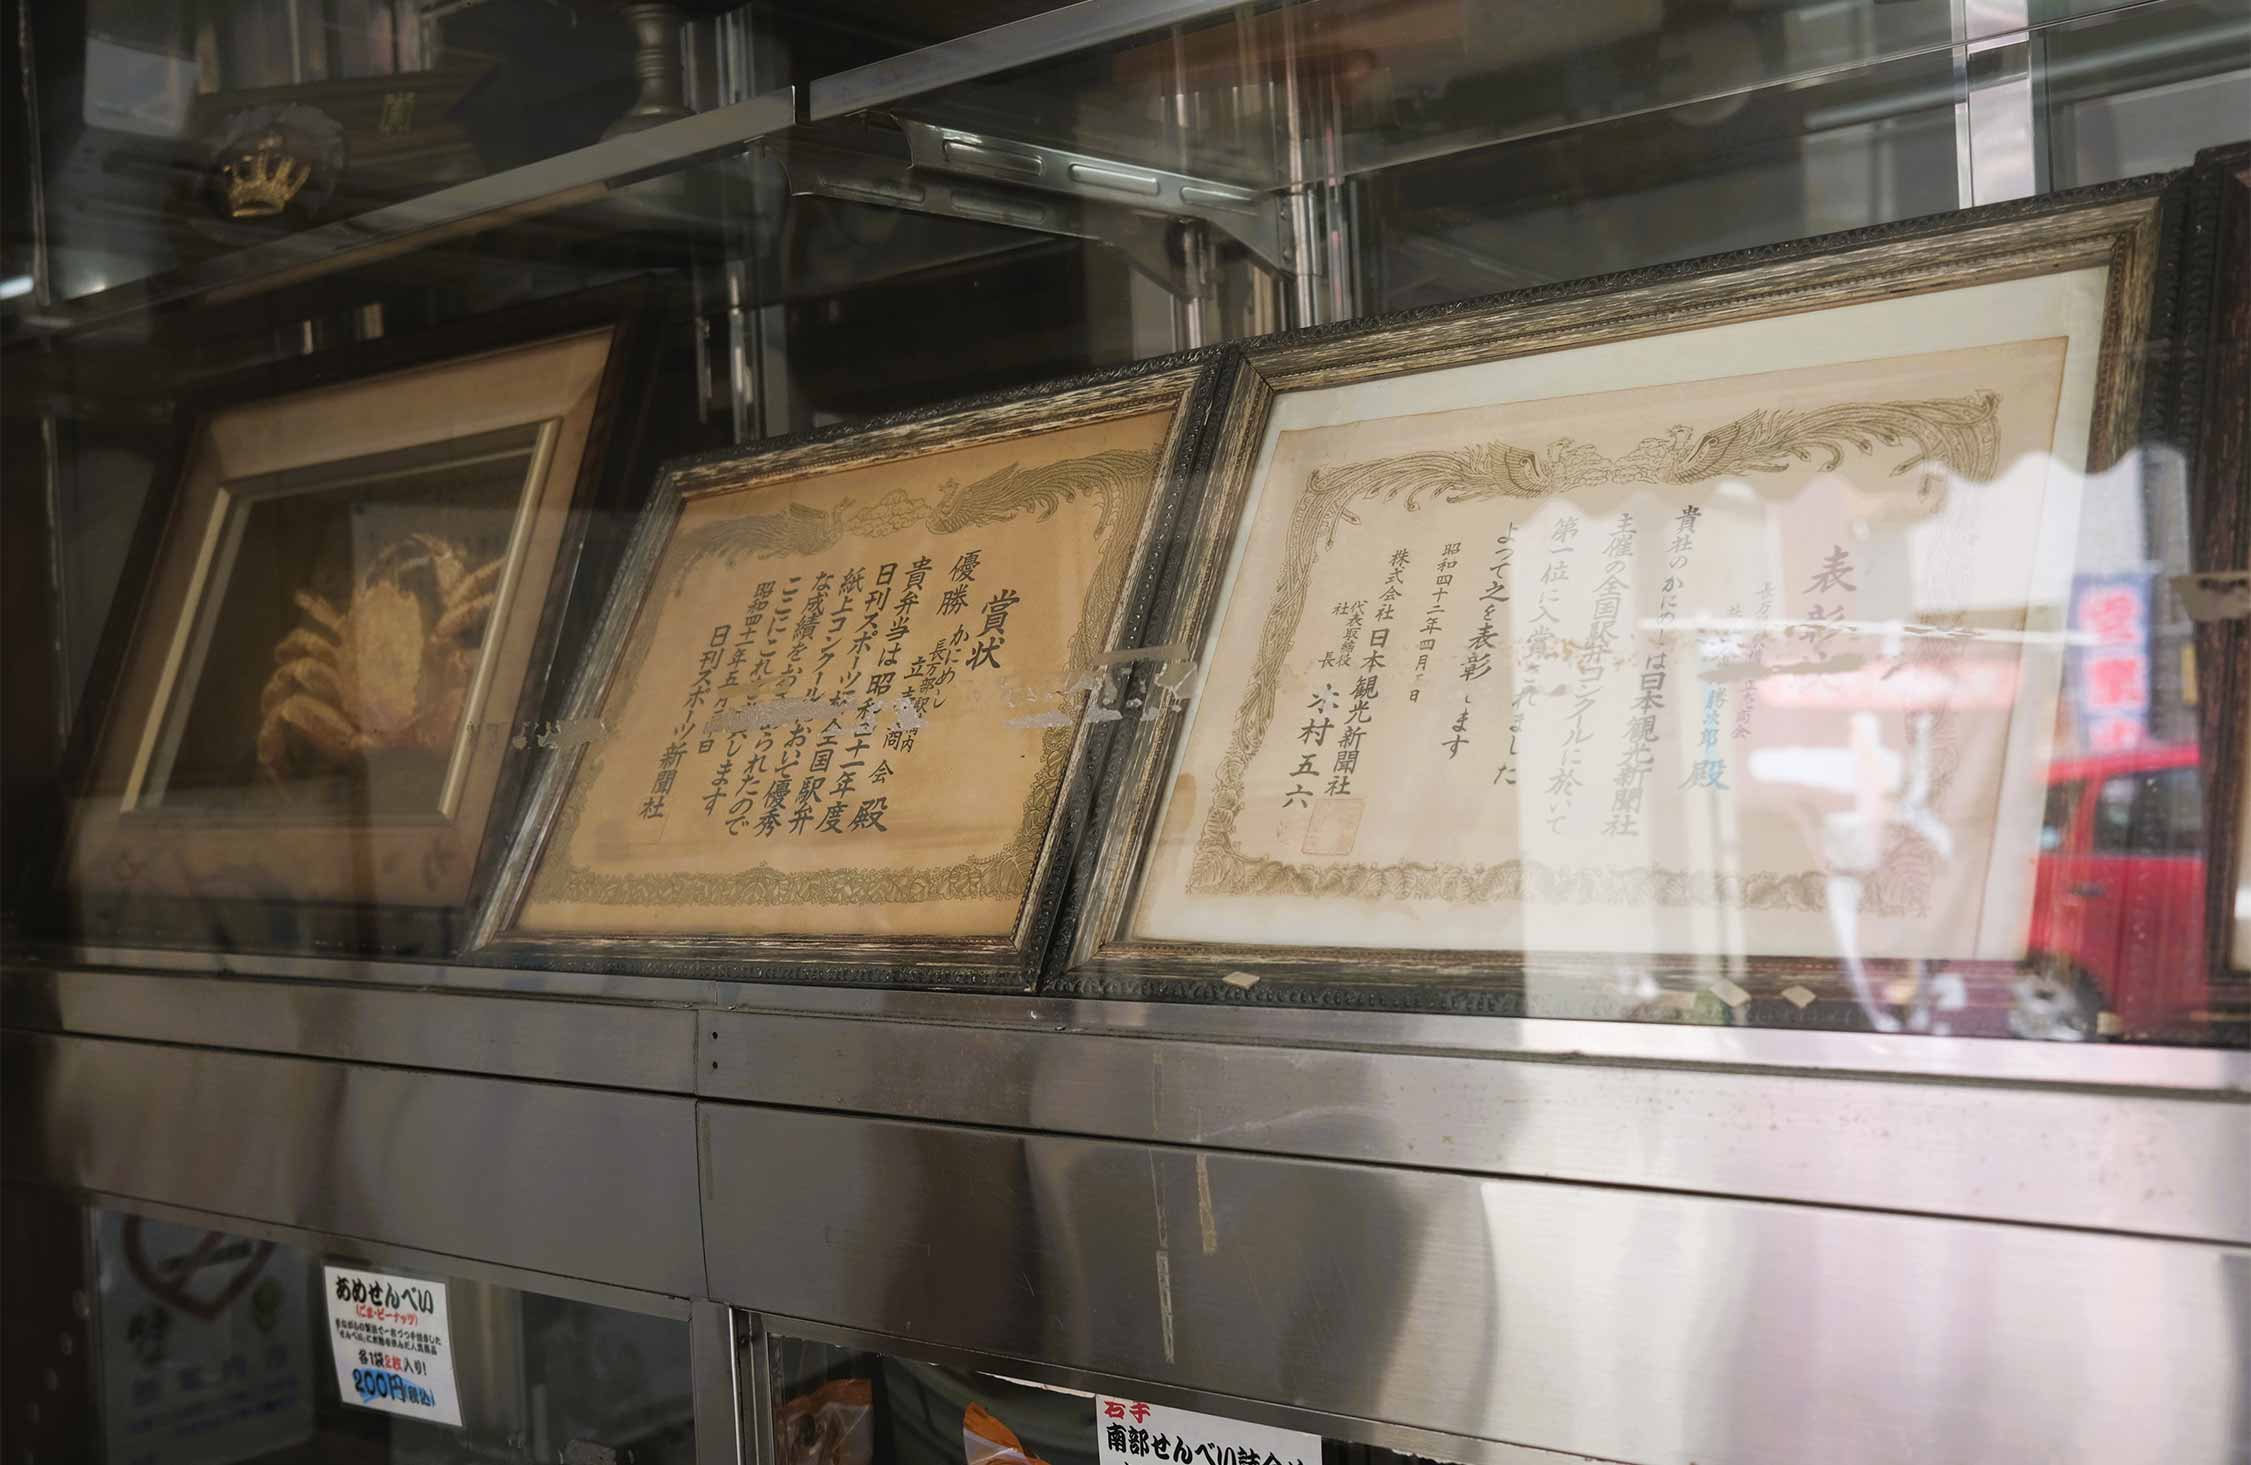 賞状
優勝 かにめし
長万部駅構内
立売商会 殿
貴弁当は昭和四十一年度
日刊スポーツ
紙上コンクール 全国駅弁
な成績を おいて優秀
ここにこれ られたので
します
昭和四十一年五
日
日刊スポーツ新聞社
表彰
殿
貴社のかにめしは日本観光新聞社
主催の全国駅弁コンクールに於いて
第一位に入賞されました
よって之を表彰します
昭和四十二年四月 日
株式会社 日本観光新聞社
代表取締役
社長
木村五六
あめせんべい
(ごま・ピーナッツ)
各1袋2枚入り!
200円(税込)
岩手
南部せんべい詰合せ